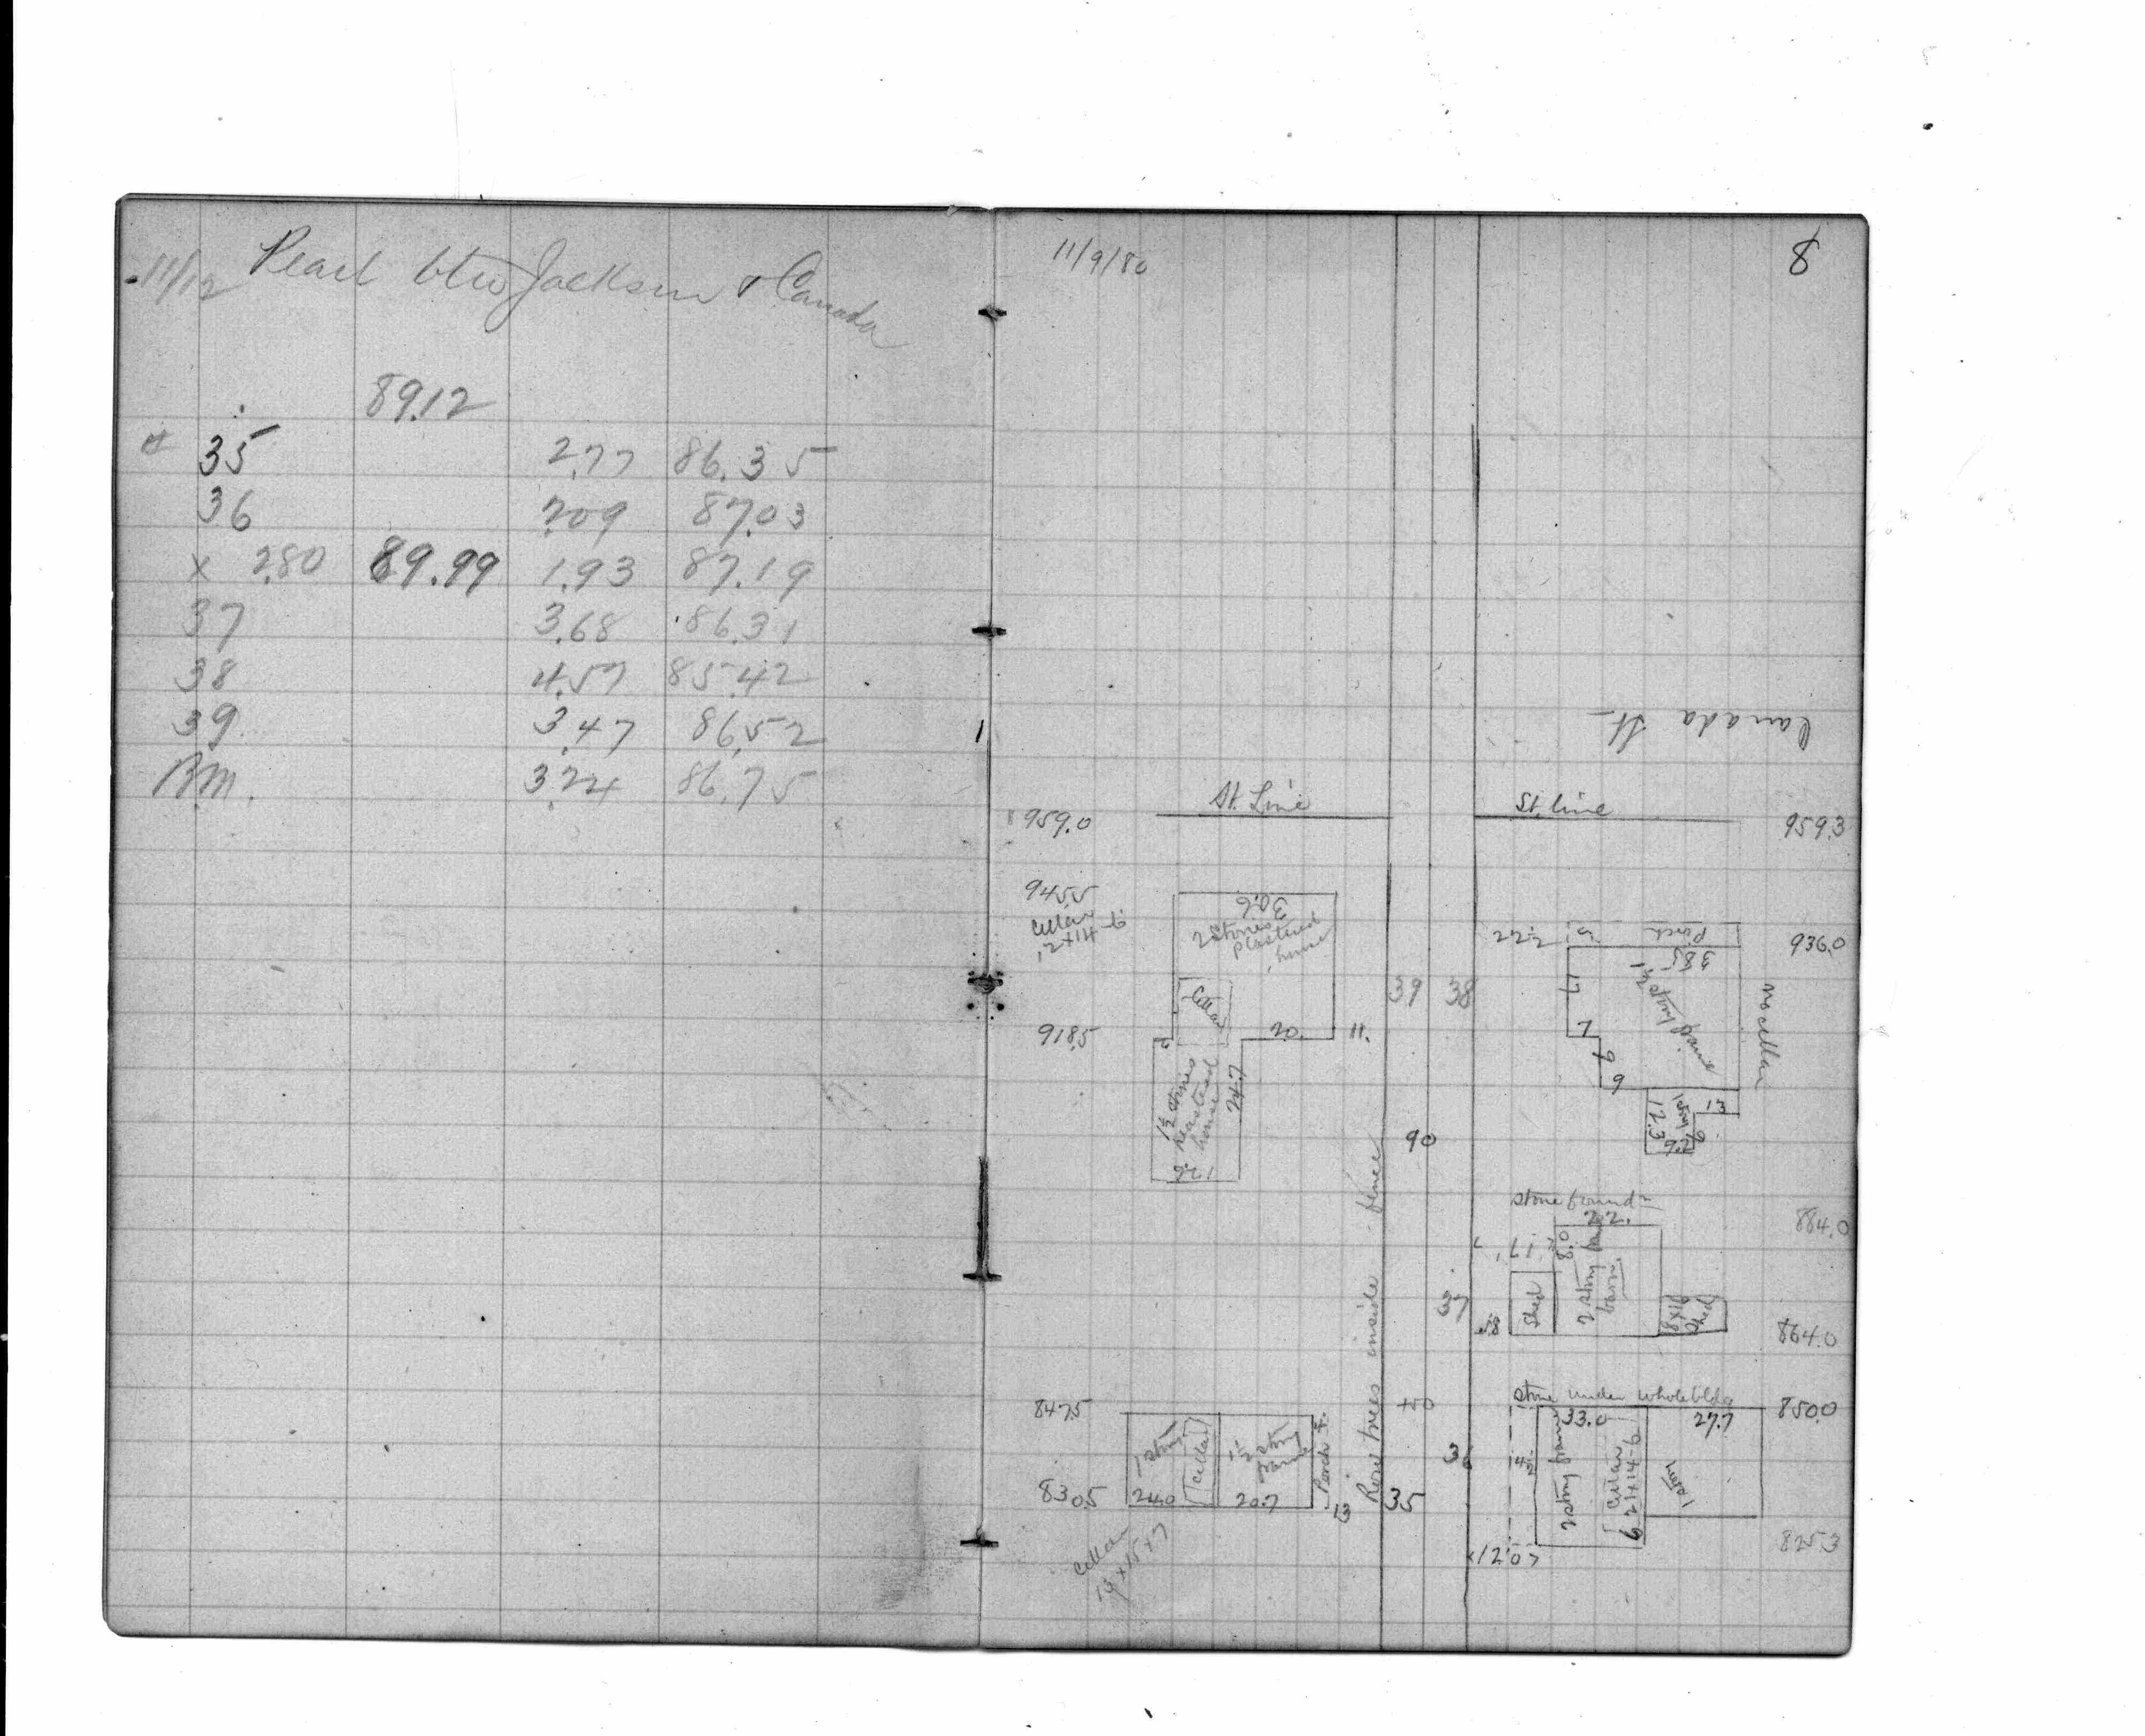 11/12 Pearl btw Jackson & Canada
89.12
35 2.77 86.35
36 2.09 87.03
x 2.80 89.99 1.93 87.19
37 3.68 86.31
38 4.57 85.42
39 3.47 86.52
B.M. 3.24 86.75
11/9/80
8
Canada St
St. Line
St. line
959.0
959.3
945.5
Cellar
12x14-6
30.6
2 stories
plastered
house
Cellar
918.5
20.
11.
1½ stories
plastered
house
24.7
39
38
22.2
5
Porch
936.0
38.5
17
7
9
6
no cellar
13
12.3
1 story
90
stone found
22.
884.0
17
18.0
Shed
2 story
barn
Shed
37
5.8
864.0
Row trees inside fence
847.5
+50
stone under whole bldg
850.0
33.0
27.7
1 story
Cellar
1½ story
frame
Porch 4.
24.0
20.7
13
830.5
35
36
2 story frame
Cellar
21x14-6
1 story
12.07
825.3
Cellar
19x15x7